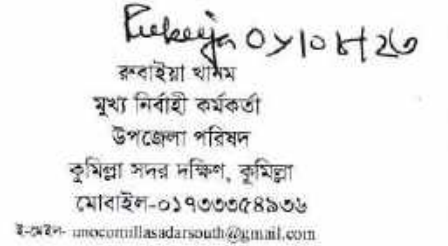 রুবাইয়া খানম
মুখ্য নির্বাহী কর্মকর্তা
উপজেলা পরিষদ
কুমিল্লা সদর দক্ষিণ, কুমিল্লা
মোবাইল-০১৭৩৩৩৫৪৯৩৬
ই-মেইল- unocomillasadarsouth@gmail.com